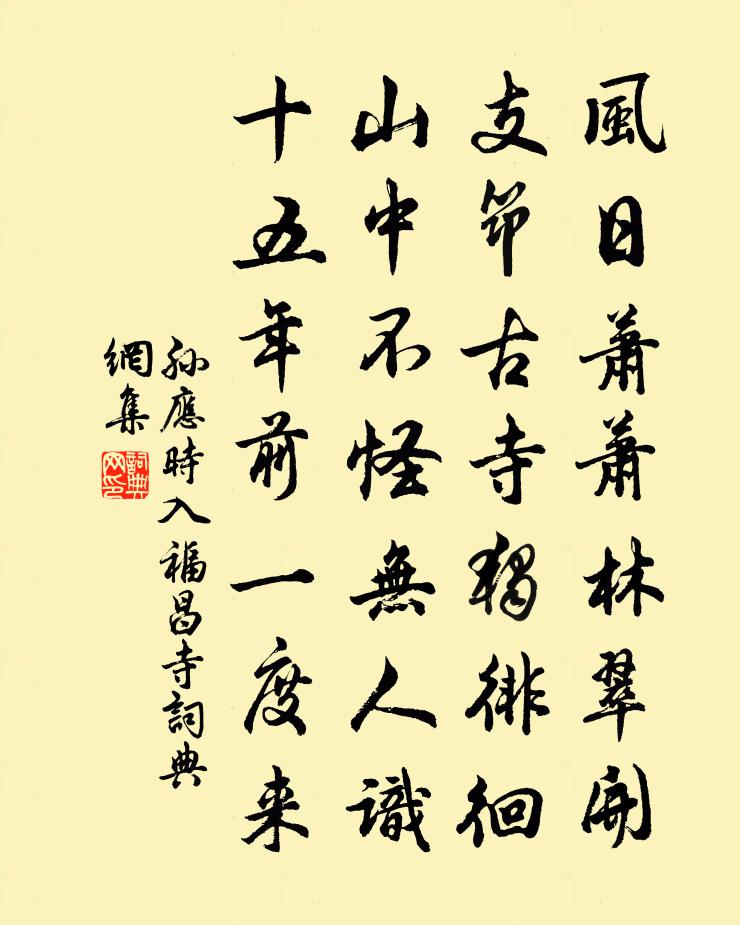 風日蕭蕭林翠開
支筇古寺獨徘徊
山中不怪無人識
十五年前一度来
孫應時入福昌寺詞典
網集
詞典网印